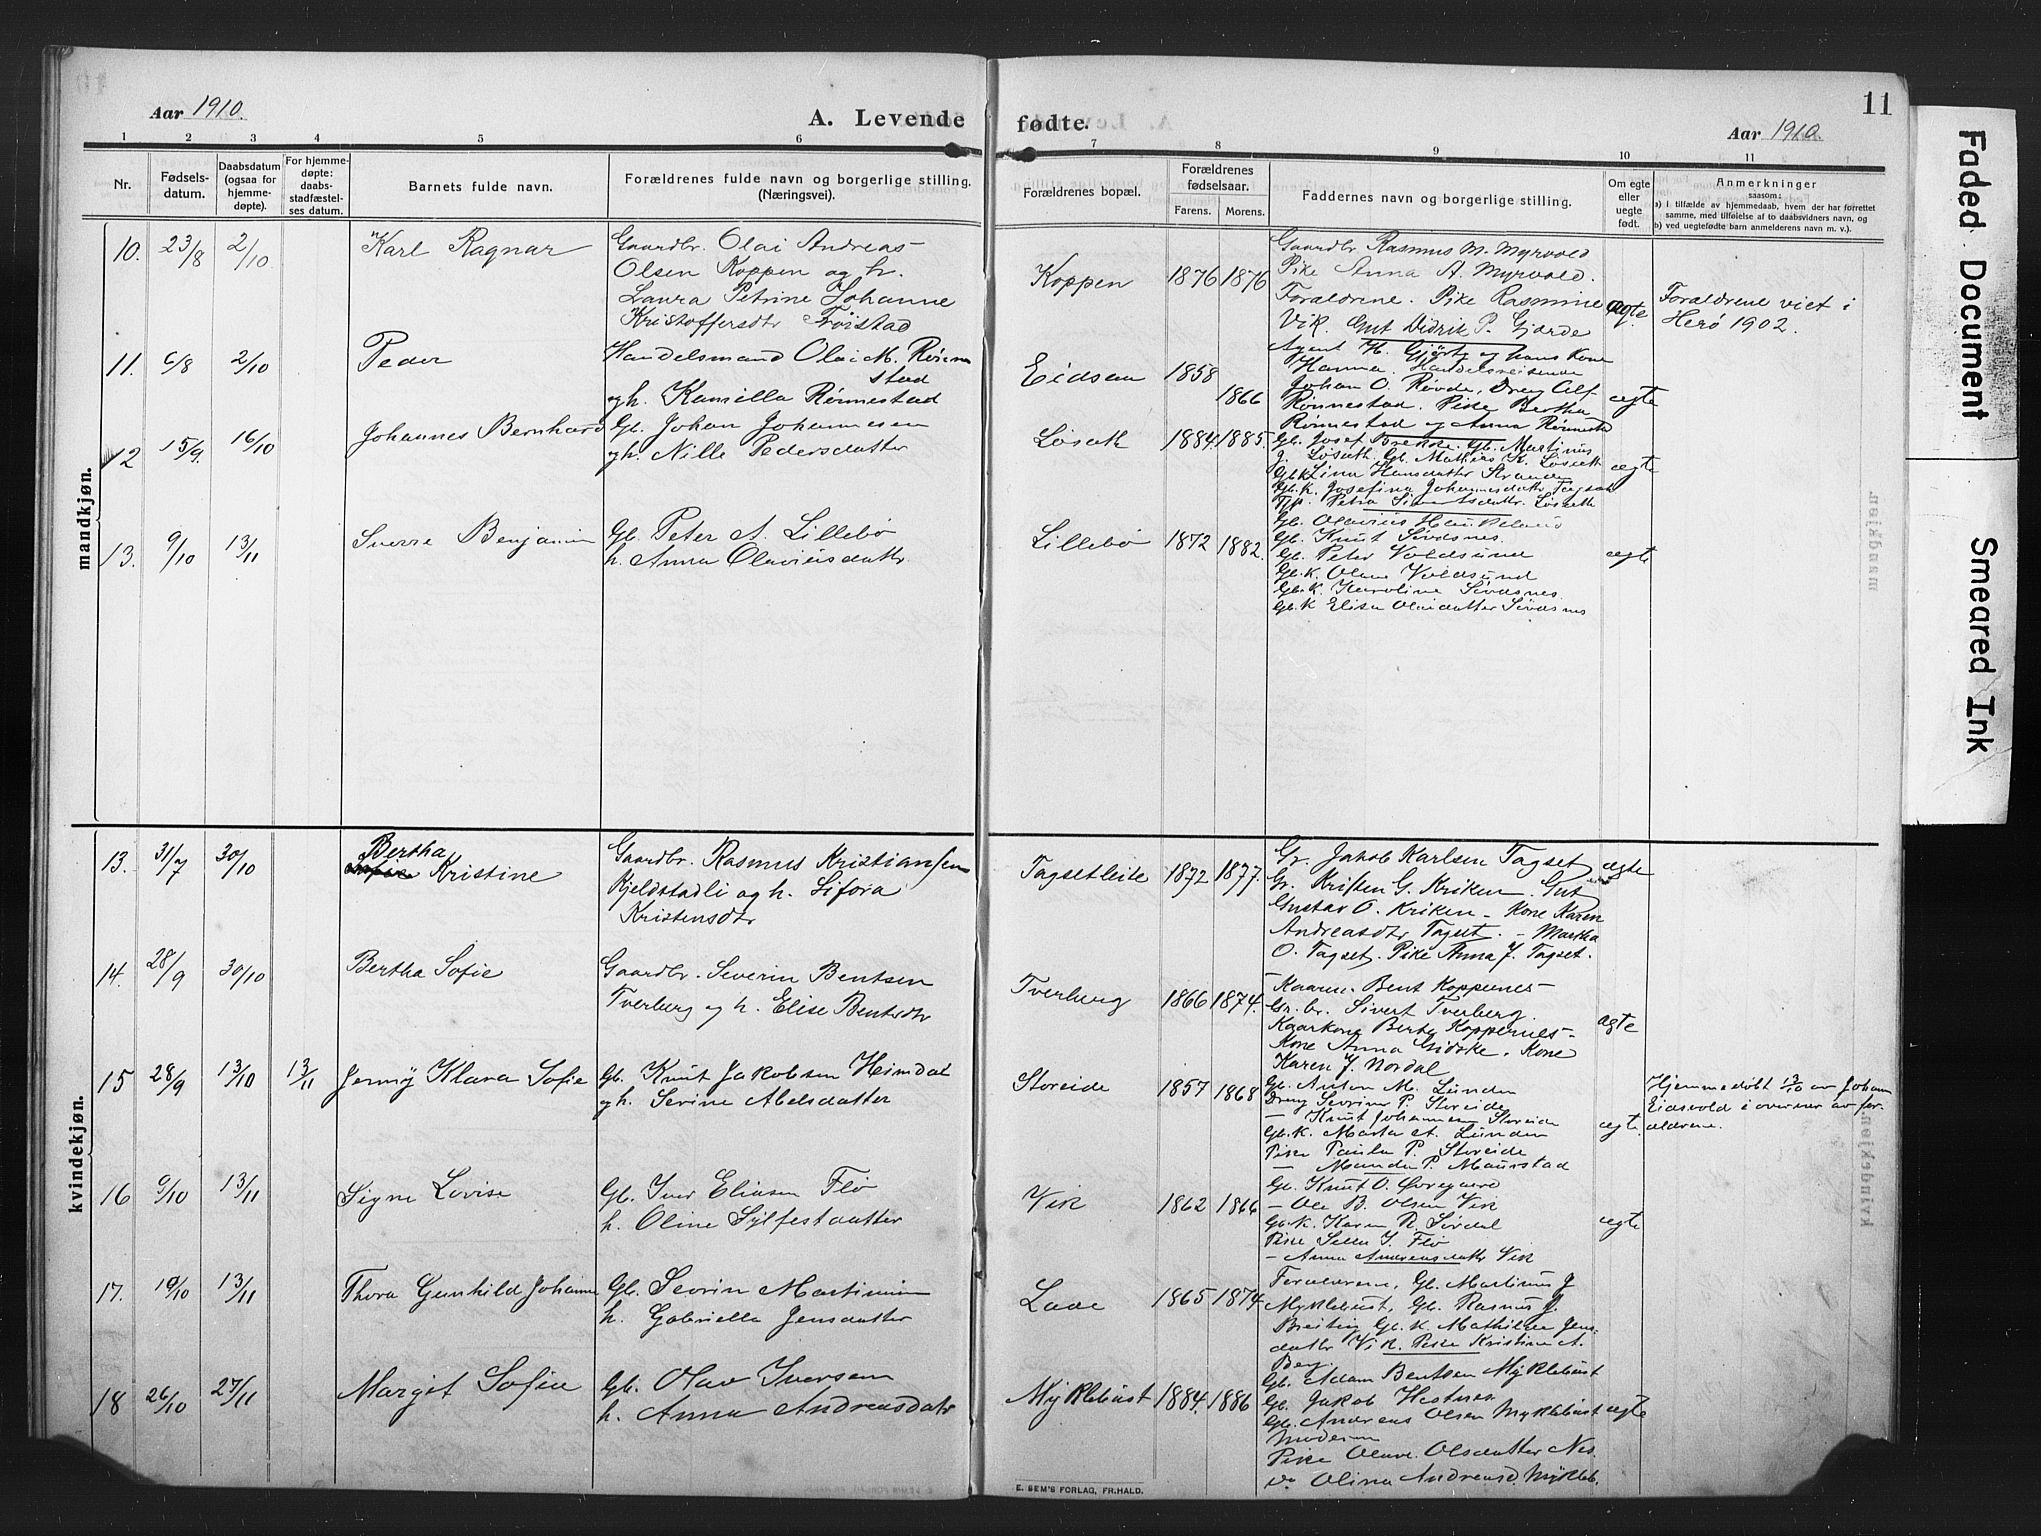 Aar 1910.
A. Levende
fødte.
Aar 1910.
11
1 2 3 4 5 6 7 8 9 10 11
Nr.
Fødsels-
datum.
Daabsdatum
(ogsaa for
hjemme-
døpte).
For hjemme-
døpte:
daabs-
stadfæstel-
ses datum.
Barnets fulde navn.
Forældrenes fulde navn og borgerlige stilling.
(Næringsvei).
Forældrenes bopæl.
Forældrenes
fødselsaar.
Farens. Morens.
Faddernes navn og borgerlige stilling.
Om egte
eller
uegte
født.
Anmerkninger
saasom:
a) i tilfælde av hjemmedaab, hvem der har forrettet
samme, med tilføielse af to daabsvidners navn, og
b) ved uegtefødte barn anmelderens navn m. v.).
mandkjøn.
10. 23/8 2/10
Karl Ragnar
Gaardbr. Olai Andreas
Olsen Koppen og h.
Laura Petrine Johanne
Kristoffersdtr Frøistad
Koppen 1876 1876
Gaardbr Rasmus M. Myrvold
Pike Anna A. Myrvold.
Forældrene. Pike Rasmine
Vik. Gut Didrik P. Gjerde
ægte.
Forældrene viet i
Herø 1902.
11. 6/8 2/10
Peder
Handelsmand Olai M. Rønne
stad
og h. Kamilla Rønnestad
Eidsaa 1858 1866
Agent H. Gjørtz og hans kone
Hanna. Handelsreisende
Johan O. Røvde, Dreng Alf
Rønnestad. Pike Bertha
Rønnestad og Anna Rønnestd
ægte
12 15/9. 16/10
Johannes Bernhard
Gb. Johan Johannesen
og h. Nille Pedersdatter
Løseth 1884. 1885.
Gb. Josef Brekke. Gb. Martinus
J. Løseth. Gb. Mathias K. Løseth
Gb.K. Lina Hansdatter Strande
Gb.K. Josefina Johannesdatr
Petra Løseth
ægte
13. 9/10 13/11
Sverre Benjamin
Gb. Peter A. Lillebø
h. Anna Olaviusdattr.
Lillebø 1872 1882
Gb. Olavius Haukeland
Gb. Knut Sørdsnes.
Gb. Peter Voldsund
Gb.K. Oline Voldsund
Gb.K. Karoline Sørdsnes.
Gb.K Elisa Olaidatter Sørdsnes
ægte
kvindekjøn.
13. 31/7 30/10
Bertha
Kristine
Gaardbr. Rasmus Kristiansen
Kjeldstadli og h. Sifora
Kristensdtr
Tagsetleite 1872 1877.
Gr. Jakob Karlsen Tagset
Gr. Kristen G. Kriken. Gut
Gustav O. Kriken - Kone Karen
Andreasdtr Tagset. - Martha
O. Tagset. Pike Anna J. Tagset.
ægte
14. 28/9 30/10
Bertha Sofie
Gaardbr. Severin Bentsen
Tverberg og h. Elise Bentsdtr
Tverberg 1866 1874.
Kaarm. Bent Koppernes-
Gr.br. Sivert Tverberg.
Kaarkone Berte Koppernes-
Kone Anna Gidske. Kone
Karen J. Nordal
ægte
15 28/9 13/10 13/11
Jenny Klara Sofie
Gb. Knut Jakobsen Heimdal
og h. Serine Abelsdatter
Storeide 1857 1868
Gb. Anton M. Lunden
Dreng Severin P. Storeide
- Knut Johannesen Storeide
Gb.K. Marta A. Lunden
Pike Paula P. Storeide
- Manda P. Maurstad
ægte.
Hjemmedøbt 13/10 av Johan
Eidsvold i overvær av for-
ældrene.
16 9/10 13/11
Signe Lovise
Gb. Iver Eliasen Flø
h. Oline Sylfestdatter
Vik 1862 1866
Gb. Knut O. Øvregaard
- Ole B. Olsen Vik
Gb.K. Karen R. Sørdal
Pike Sella I. Flø
- Anna Andreasdatr Vik
ægte
17. 19/10 13/11
Thora Gunhild Johanne
Gb. Severin Martinius
h. Gabriella Jensdatter
Laae 1865 1874
Forældrene, Gb. Martinus J
Myklebust, Gb. Rasmus J.
Breiteig Gb. K. Mathilde Jens-
datter Vik. Pike Kristine A.
Berg.
18 26/10 27/11
Margit Sofie
Gb. Olav Iversen
h. Anna Andreasdatr
Myklebust 1884. 1886
Gb. Adam Bentsen Myklebust
Gb. Jakob Hestnes
Gb. Andreas Olsen Myklebust
Moderen
Pike Olave Olsdatter Nes.
do Olina Andreasd. Mykleb.
ægte
E. SEM'S FORLAG, FR.HALD.
Faded Document
Smeared Ink